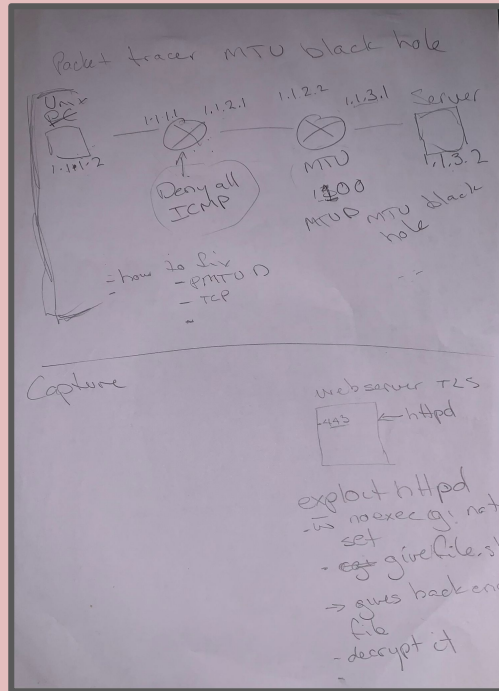 Packet tracer MTU black hole
Unix
PC
1.1.1.2
1.1.1.1
1.1.2.1
1.1.2.2
1.1.3.1
Server
1.1.3.2
Deny all
ICMP
MTU
1100
MTUD MTU black
hole
- how to fix
- PMTU D
- TCP
-
Capture
webserver TLS
443
httpd
exploit httpd
- noexec not
set
- give file.s
→ gives back enc
file
- decrypt it
-